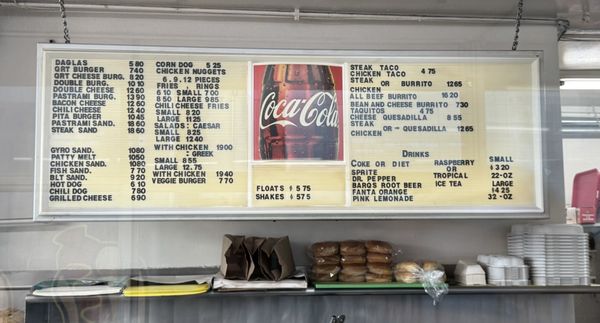 DAGLAS 5 80
QRT BURGER 7 40
QRT CHEESE BURG. 8 20
DOUBLE BURG. 10 10
DOUBLE CHEESE 12 60
PASTRAMI BURG. 13 90
BACON CHEESE 12 60
CHILI CHEESE 12 40
PITA BURGER 10 45
PASTRAMI SAND. 16 60
STEAK SAND 18 60
GYRO SAND. 10 80
PATTY MELT 10 50
CHICKEN SAND. 10 80
FISH SAND. 7 70
BLT SAND. 9 20
HOT DOG 6 10
CHILI DOG 7 80
GRILLED CHEESE 6 90
CORN DOG 5 25
CHICKEN NUGGETS
6 . 9. 12 PIECES
FRIES , RINGS
6 10 SMALL 7 00
8 50 LARGE 9 85
CHILI CHEESE FRIES
SMALL 8 20
LARGE 11 25
SALADS : CAESAR
SMALL 8 25
LARGE 12 40
WITH CHICKEN 19 00
: GREEK
SMALL 8 55
LARGE 12.75
WITH CHICKEN 19 40
VEGGIE BURGER 7 70
Coca-Cola
FLOATS $ 5 75
SHAKES $ 5 75
STEAK TACO
CHICKEN TACO 4 75
STEAK
OR BURRITO 12 65
CHICKEN
ALL BEEF BURRITO 16 20
BEAN AND CHEESE BURRITO 7 30
TAQUITOS 4 75
CHEESE QUESADILLA 8 55
STEAK
OR QUESADILLA 12 65
CHICKEN
DRINKS
COKE OR DIET
SPRITE
DR. PEPPER
BARQS ROOT BEER
FANTA ORANGE
PINK LEMONADE
RASPBERRY
OR
TROPICAL
ICE TEA
SMALL
$ 3 20
22-OZ
LARGE
$4 25
32-OZ